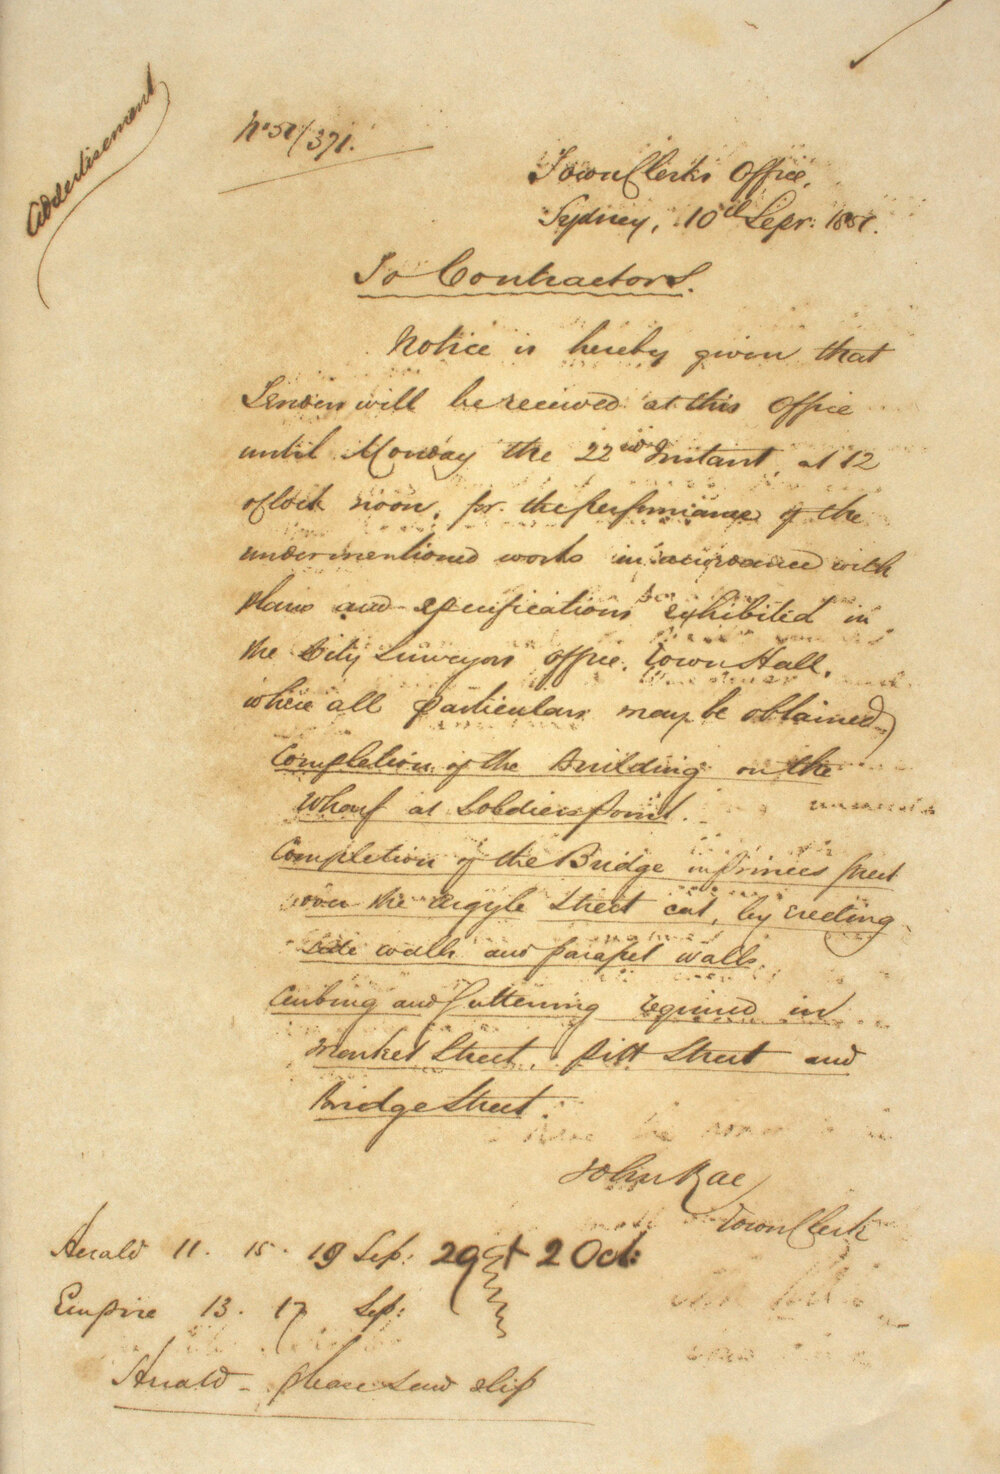 Advertisement
No 51/371.
Town Clerks Office,
Sydney, 10th Sepr. 1851.
To Contractors.
Notice is hereby given that
Tenders will be received at this Office
until Monday the 22nd Instant, at 12
oClock noon, for the performance of the
undermentioned works in accordance with
plans and specifications to be exhibited in
the City Surveyors office, Town Hall,
where all particulars may be obtained
Completion of the Building on the
Wharf at Soldiers point.
Completion of the Bridge in Princes Street
over the Argyle Street cut, by erecting
side walk and parapet walls,
Curbing and Guttering required in
Market Street, Pitt Street and
Bridge Street.
John Rae
Town Clerk
Herald 11. 15. 19 Sep: 29 + 2 Oct:
Empire 13. 17 Sep:
Herald - please send slip